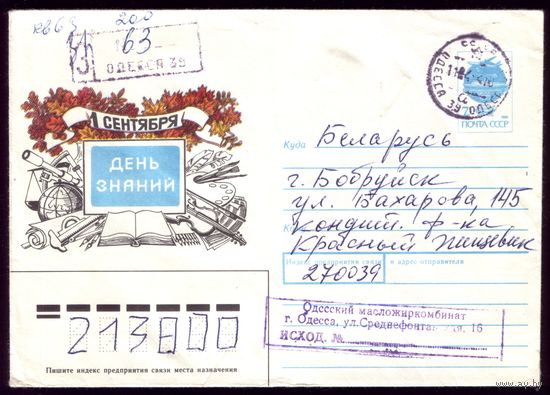 200
63
ОДЕССА 39
1 СЕНТЯБРЯ
ДЕНЬ
ЗНАНИЙ
ОДЕССА 39 ОДЕСА
7
ПОЧТА СССР
Куда Беларусь
г. Бобруйск
ул. Бахарова, 145
кондит. ф-ка
Красный Пищевик
Индекс предприятия связи и адрес отправителя
270039
Одесский масложиркомбинат
г. Одесса, ул. Среднефонтанская, 16
ИСХОД. №
213800
Пишите индекс предприятия связи места назначения
www.ay.by